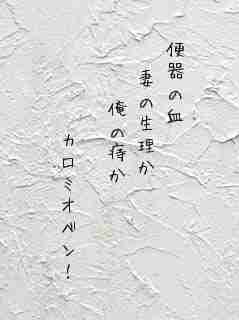 便器の血
妻の生理か
俺の痔か
カロミオベン！